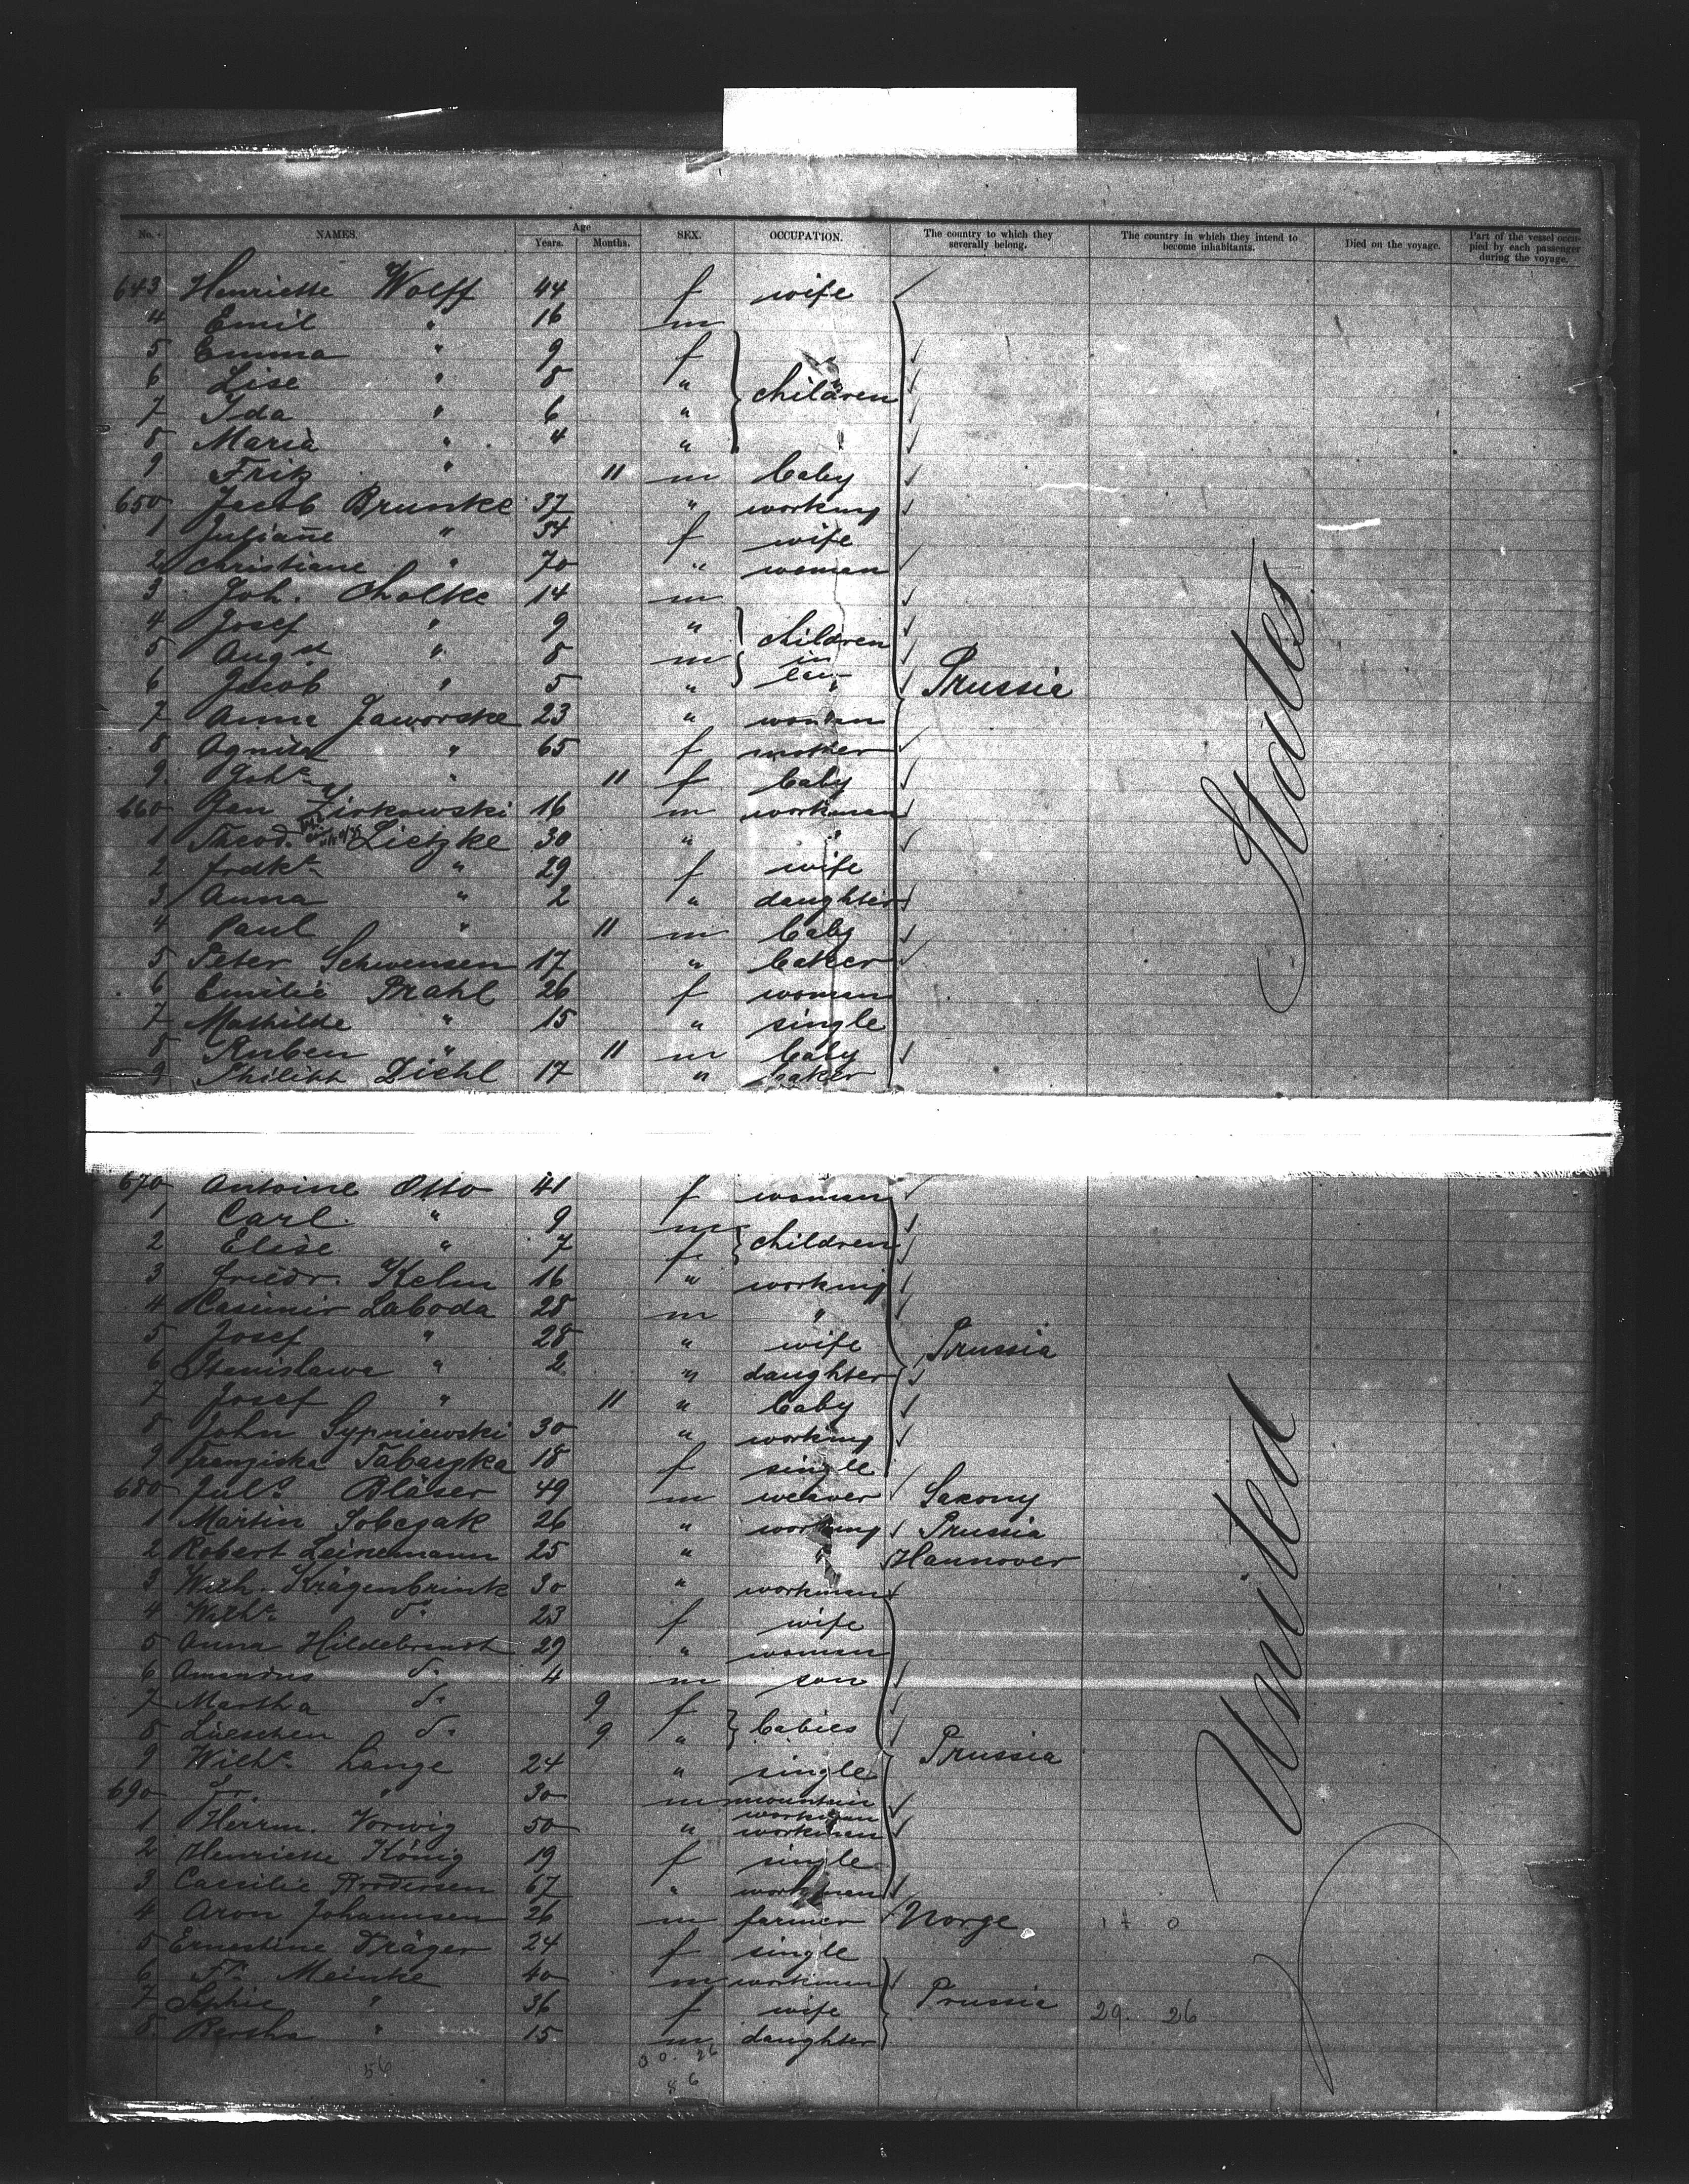 No. NAMES. Age Years. Months. SEX. OCCUPATION. The country to which they severally belong. The country in which they intend to become inhabitants. Died on the voyage. Part of the vessel occupied by each passenger during the voyage.
643 Henriette Wolff 44 f wife
4 Emil " 16 m
5 Emma " 9 f
6 Lise " 8 " children
7 Ida " 6 "
8 Maria " 4 "
9 Fritz " 11 m baby
650 Jacob Brunke 37 " working
1 Juliane " 54 f wife
2 Christiane " 70 " woman
3 Joh. Cholke 14 m
4 Josef " 9 " children
5 Augst " 8 m in
6 Jacob " 5 " Prussia
7 Anna Jaworske 23 " woman
8 " 65 f mother
9 Johe " 11 f baby
660 Jan Zirkowski 16 m workman
1 Theod. Lietzke 30 " "
2 Fredke " 29 f wife
3 Anna " 2 " daughter
4 Paul " 11 m baby
5 Peter Schwensen 17 " baker
6 Emilie Prahl 26 f woman
7 Mathilde " 15 " single
8 Ruben " 11 m baby
9 Philipp Diehl 17 " baker
670 Antoine Otto 41 f woman
1 Carl " 9 m children
2 Elise " 7 f
3 Friedr. Kelm 16 " working
4 Casimir Laboda 28 m "
5 Josef " 28 " wife Prussia
6 Stanislawa " 2 " daughter
7 Josef " 11 " baby
8 John Sypniewski 30 " working
9 Franziska Tabaczka 18 f single
680 Juls Bläser 49 m weaver Saxony
1 Martin Sobczak 26 " working Prussia
2 Robert Leinemann 25 " " Hannover
3 Wilh. Krägenbrink 30 " workman
4 Wilhe do 23 f wife
5 Anna Hildebrandt 29 " woman
6 Amandus do 4 m son
7 Martha do 9 f babies
8 Lieschen do 9 "
9 Wilhe Lange 24 " single Prussia
690 Fr. " 30 m mountain workman
1 Herrm. Vorwig 50 " workman
2 Henriette König 19 f single
3 Cassilie Brodersen 67 " workman
4 Aron Johannsen 26 m farmer Norge
5 Ernestine Träger 24 f single
6 Fr. Meinke 40 m workman
7 Sophie " 36 f wife Prussia 29. 26
8 Bertha " 15 m daughter
56
United States